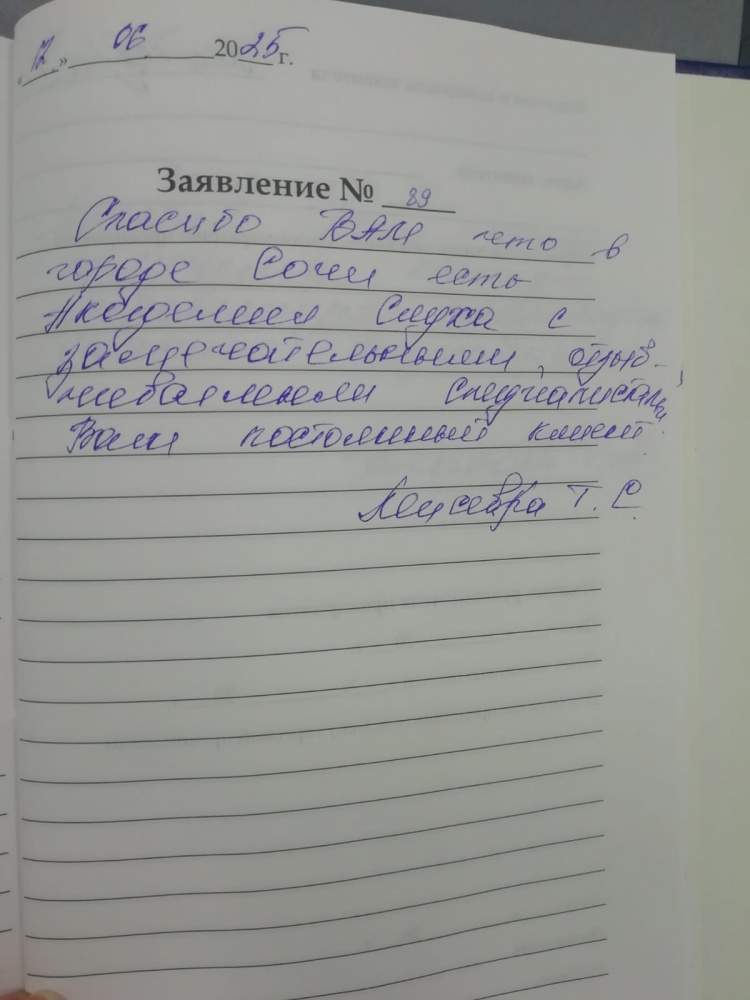 «12» 06 2025 г.
Заявление № 89
Спасибо ВАМ что в
городе Сочи есть
Академия Слуха с
замечательными, отзыв-
чивыми специалистами,
Ваш постоянный клиент
Т. С.